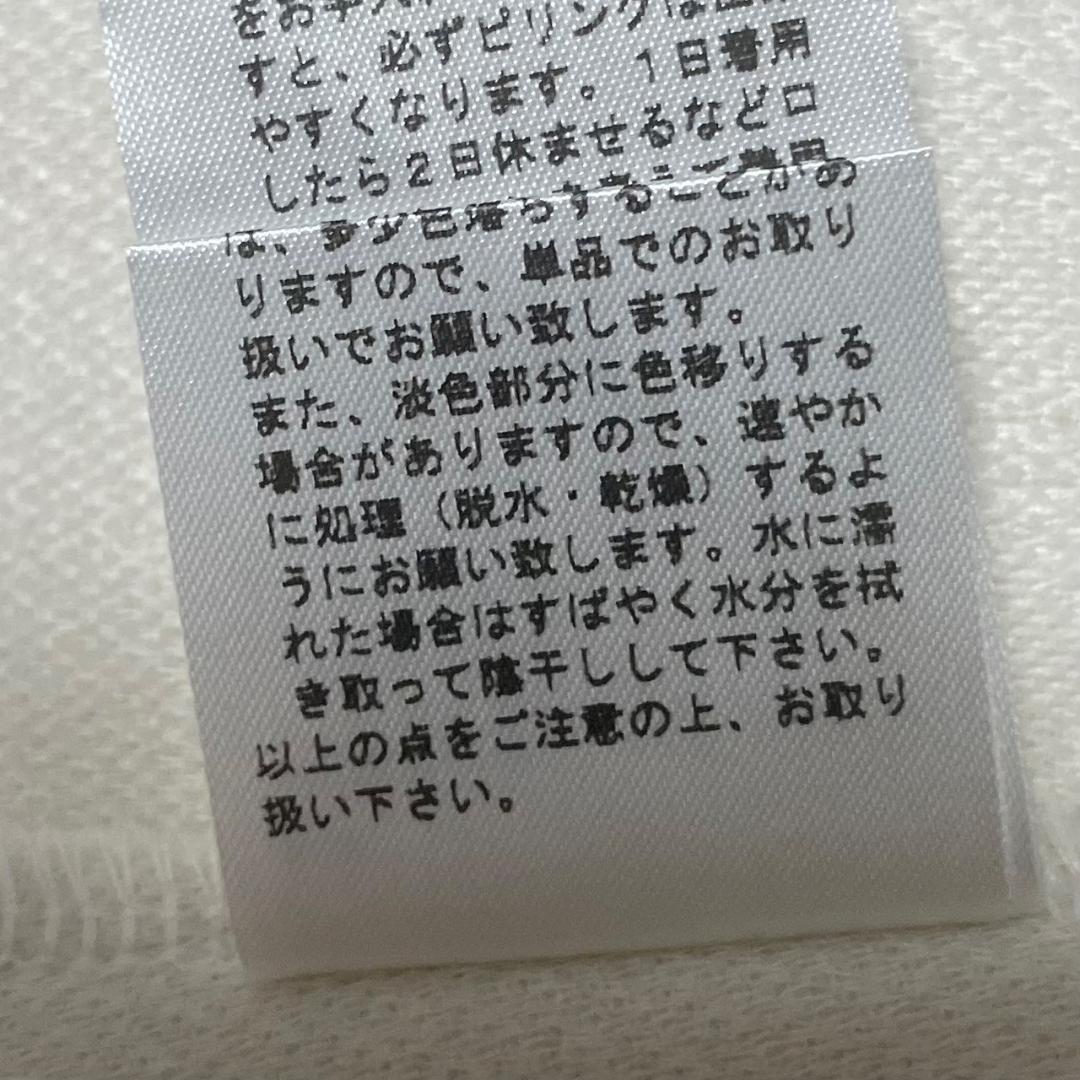 すと、必ずピリング
やすくなります。1日着用
したら2日休ませるなど
は、多少色落ちすることがあ
りますので、単品でのお取り
扱いでお願い致します。
また、淡色部分に色移りする
場合がありますので、速やか
に処理（脱水・乾燥）するよ
うにお願い致します。水に濡
れた場合はすばやく水分を拭
き取って陰干しして下さい。
以上の点をご注意の上、お取り
扱い下さい。